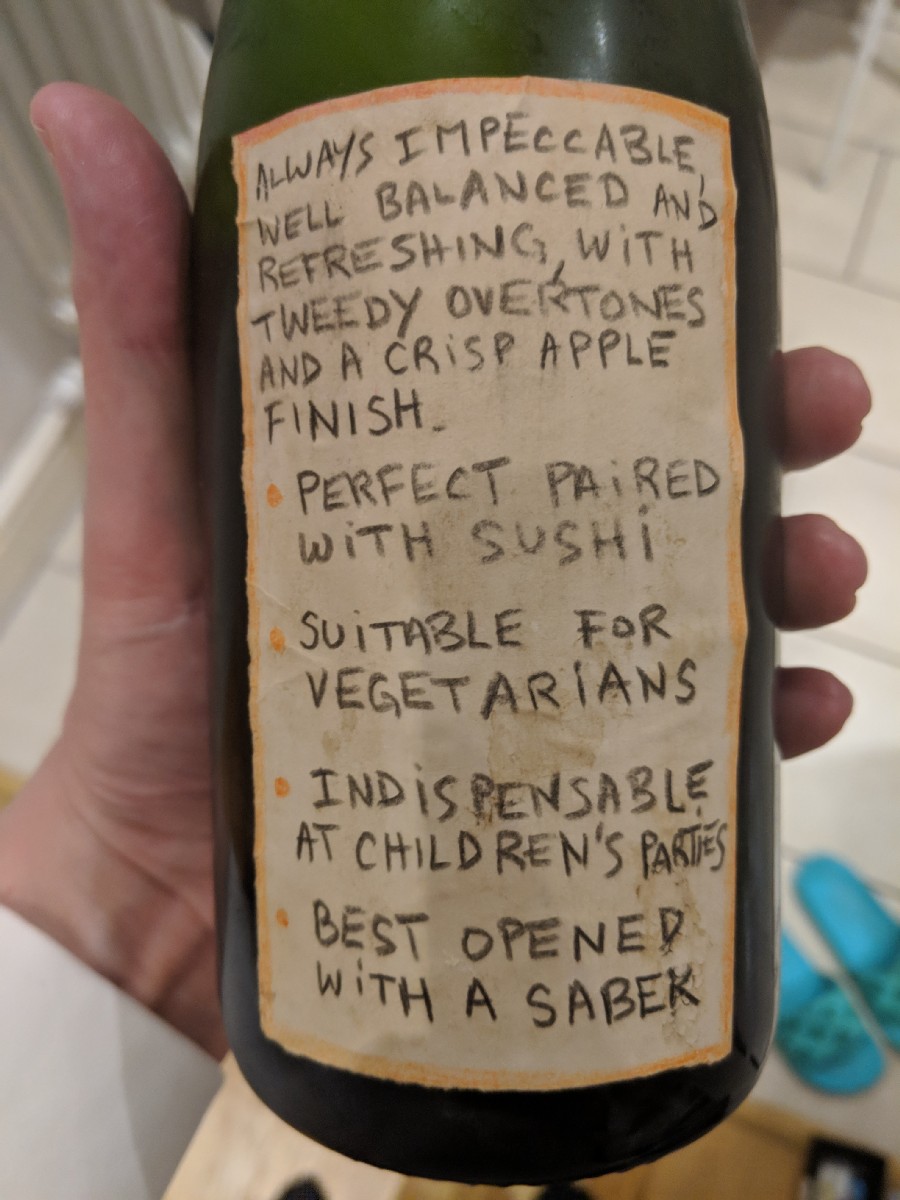 ALWAYS IMPECCABLE,
WELL BALANCED AND
REFRESHING, WITH
TWEEDY OVERTONES
AND A CRISP APPLE
FINISH.
• PERFECT PAIRED
WITH SUSHI
• SUITABLE FOR
VEGETARIANS
• INDISPENSABLE
AT CHILDREN'S PARTIES
• BEST OPENED
WITH A SABER